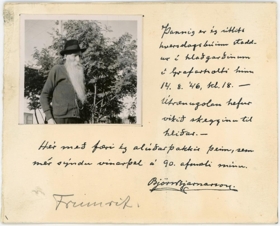 Þannig er ég útlits
hversdagsbúinn stadd-
ur í hlaðgarðinum
í Grafarholti hinn
14. 8. '46. kl. 18. –
Útrænugolan hefur
vikið skegginu til
hliðar. –
Hér með færi ég alúðarþakkir þeim, sem
mér sýndu vinarþel á 90. afmæli mínu.
Björn Bjarnarson.
Frumrit.